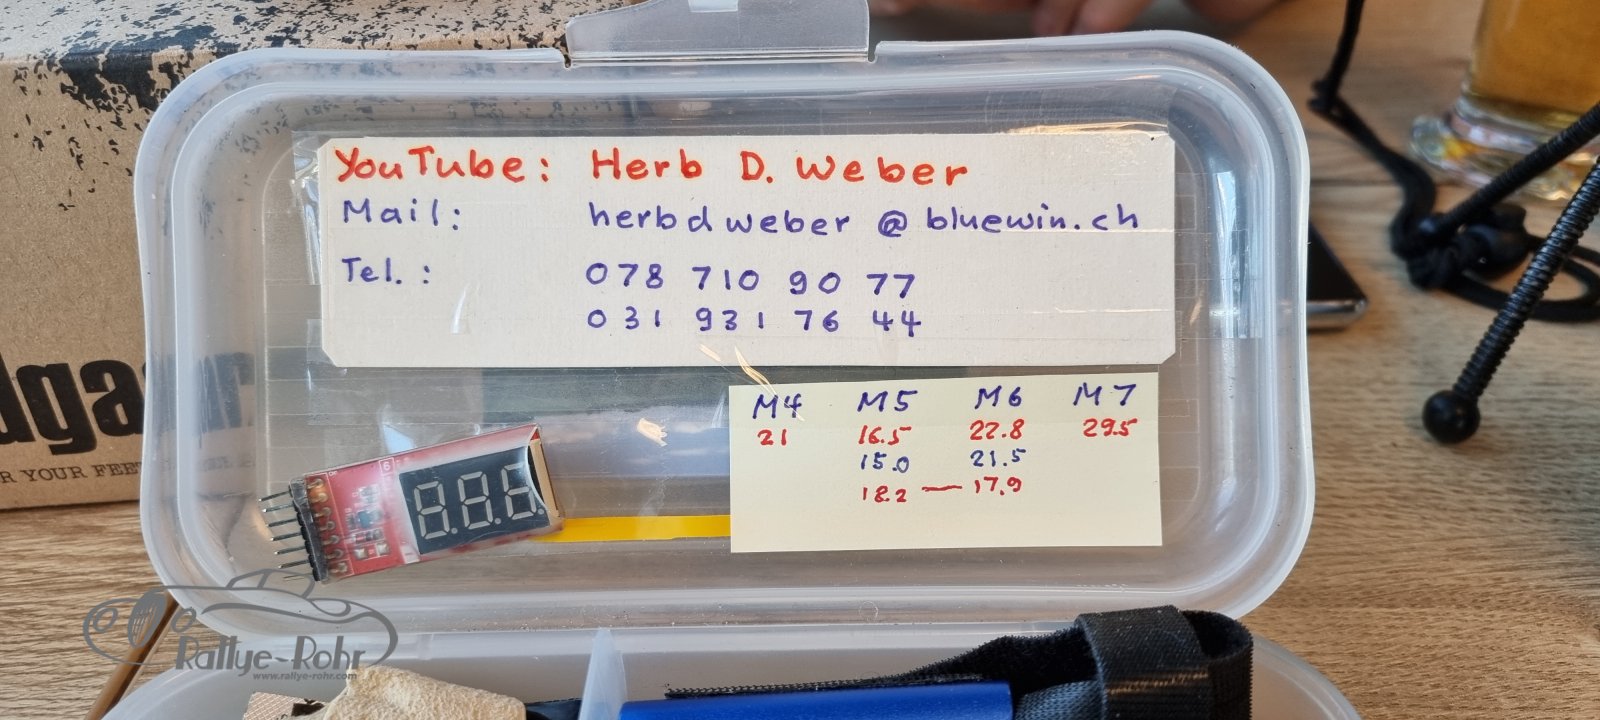 YouTube: Herb D. Weber
Mail: herbdweber@bluewin.ch
Tel.: 078 710 90 77
031 931 76 44
M4 M5 M6 M7
21 16.5 22.8 29.5
15.0 21.5
18.2 — 17.9
8.8.8.
R YOUR FEE
Rallye-Rohr
www.rallye-rohr.com